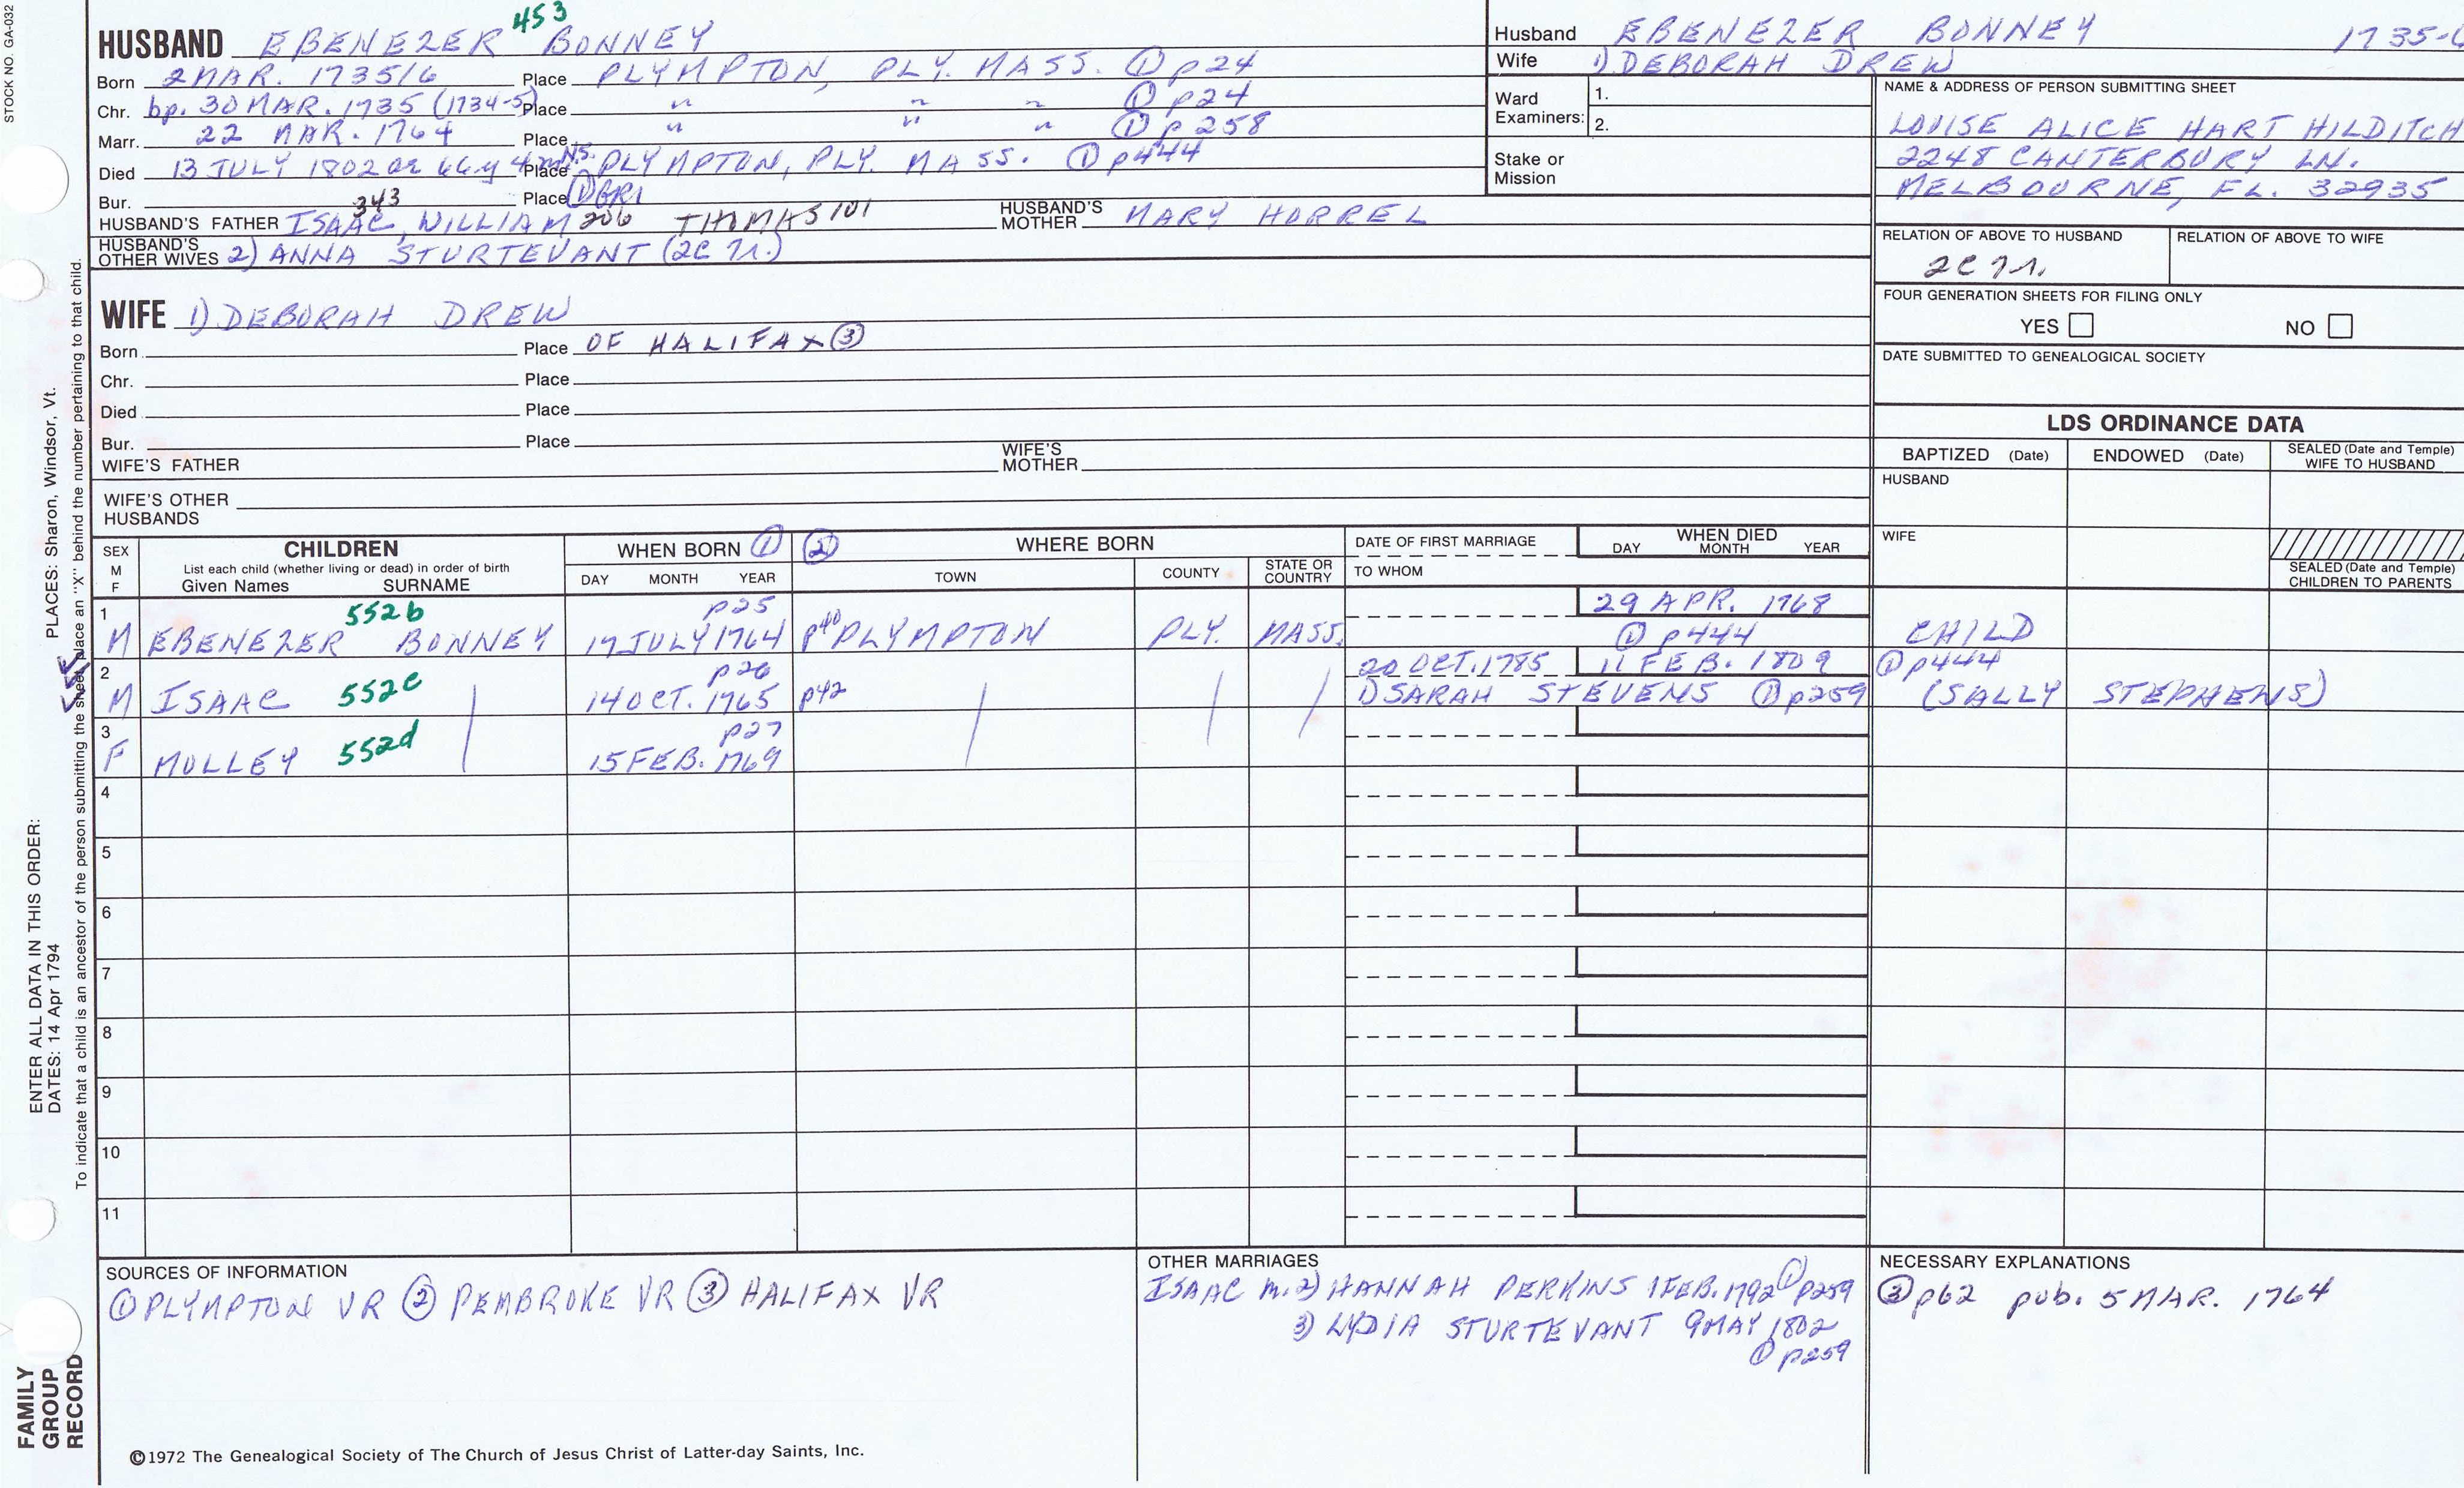 STOCK NO. GA-032
453
HUSBAND EBENEZER BONNEY
Born 2 MAR. 1735/6 Place PLYMPTON, PLY. MASS. ① p24
Chr. bp. 30 MAR. 1735 (1734-5) Place " " " ① p24
Marr. 22 MAR. 1764 Place " " " ① p258
Died 13 JULY 1802 ae 66y 4m N.S. Place PLYMPTON, PLY. MASS. ① p444
Bur. Place ① GR1
343
HUSBAND'S FATHER ISAAC, WILLIAM 206 THOMAS 101 HUSBAND'S MOTHER MARY HORREL
HUSBAND'S OTHER WIVES 2) ANNA STURTEVANT (2C 7r.)
WIFE 1) DEBORAH DREW
Born Place OF HALIFAX ③
Chr. Place
Died Place
Bur. Place
WIFE'S FATHER WIFE'S MOTHER
WIFE'S OTHER HUSBANDS
Husband EBENEZER BONNEY 1735-6
Wife 1) DEBORAH DREW
Ward Examiners: 1.
2.
Stake or Mission
NAME & ADDRESS OF PERSON SUBMITTING SHEET
LOUISE ALICE HART HILDITCH
2248 CANTERBURY LN.
MELBOURNE, FL. 32935
RELATION OF ABOVE TO HUSBAND RELATION OF ABOVE TO WIFE
2C 7r.
FOUR GENERATION SHEETS FOR FILING ONLY
YES NO
DATE SUBMITTED TO GENEALOGICAL SOCIETY
LDS ORDINANCE DATA
BAPTIZED (Date) ENDOWED (Date) SEALED (Date and Temple) WIFE TO HUSBAND
HUSBAND
WIFE
SEALED (Date and Temple) CHILDREN TO PARENTS
SEX M F
CHILDREN
List each child (whether living or dead) in order of birth
Given Names SURNAME
WHEN BORN ① ② WHERE BORN
DAY MONTH YEAR TOWN COUNTY STATE OR COUNTRY
DATE OF FIRST MARRIAGE
TO WHOM
WHEN DIED
DAY MONTH YEAR
1 552b p25 29 APR. 1768
M EBENEZER BONNEY 17 JULY 1764 p40 PLYMPTON PLY. MASS. ① p444 CHILD
2 p26 20 OCT. 1785 11 FEB. 1809 ① p444
M ISAAC 552c 14 OCT. 1765 p42 1) SARAH STEVENS ① p259 (SALLY STEPHENS)
3 p27
F MOLLEY 552d 15 FEB. 1769
4
5
6
7
8
9
10
11
SOURCES OF INFORMATION
① PLYMPTON VR ② PEMBROKE VR ③ HALIFAX VR
OTHER MARRIAGES
ISAAC m. 2) HANNAH PERKINS 1 FEB. 1792 ① p259
3) LYDIA STURTEVANT 9 MAY 1802
① p259
NECESSARY EXPLANATIONS
③ p62 pub. 5 MAR. 1764
©1972 The Genealogical Society of The Church of Jesus Christ of Latter-day Saints, Inc.
ENTER ALL DATA IN THIS ORDER:
DATES: 14 Apr 1794 PLACES: Sharon, Windsor, Vt.
To indicate that a child is an ancestor of the person submitting the sheet, place an "X" behind the number pertaining to that child.
FAMILY
GROUP
RECORD